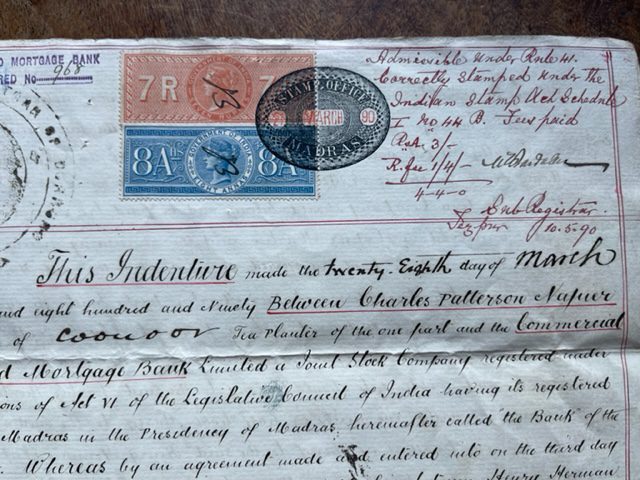 D MORTGAGE BANK
RED No 968
7 R
7
GOVERNMENT OF INDIA
8 As
8 A
EIGHT ANNAS
STAMP OFFICE
MARCH
90
MADRAS
Admissible under Rule 41.
Correctly stamped under the
Indian Stamp Act Schedule
I no 44 B. Fees paid
RsA 3/-
R. fee 1/4/-
4-4-0
Sub Registrar
Tezpur 10.5.90
This Indenture made the twenty-Eighth day of March
and eight hundred and Ninety Between Charles Patterson Napier
of Coonoor Tea Planter of the one part and the Commercial
d Mortgage Bank Limited a Joint Stock Company registered under
ions of Act VI of the Legislative Council of India having its registered
Madras in the Presidency of Madras, hereinafter called "the Bank" of the
Whereas by an agreement made and entered into on the third day
Henry Herman